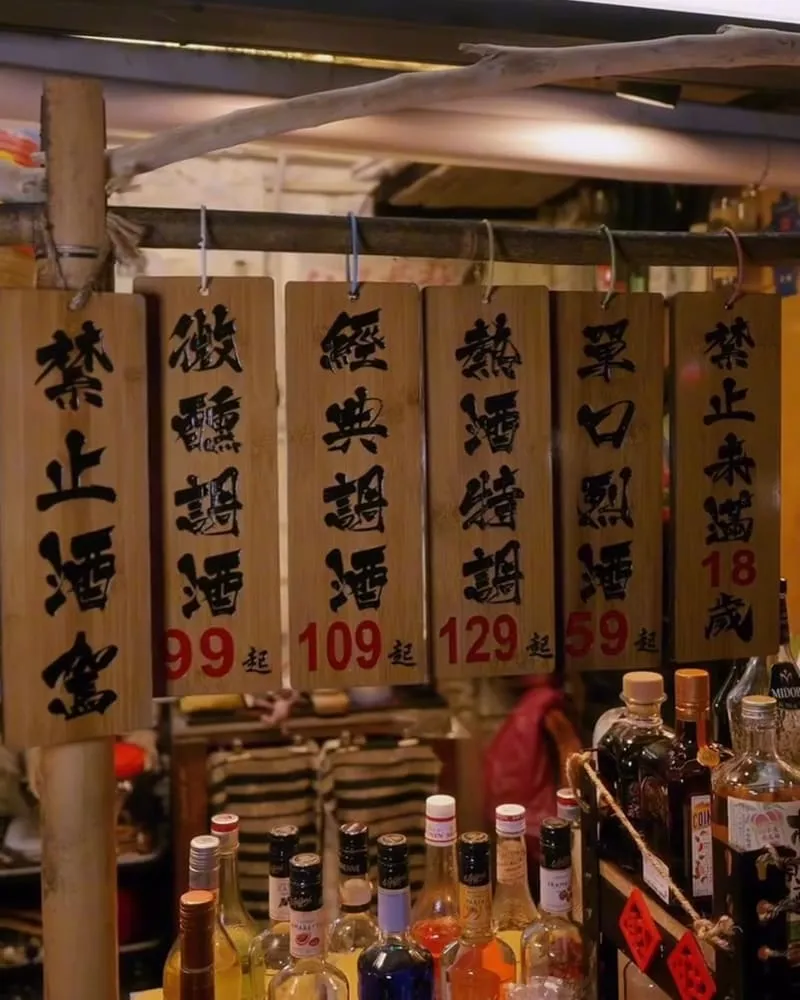 禁止酒駕
微醺調酒
99起
經典調酒
109起
熱酒特調
129起
單口烈酒
59起
禁止未滿
18
歲
MIDOR
COIN